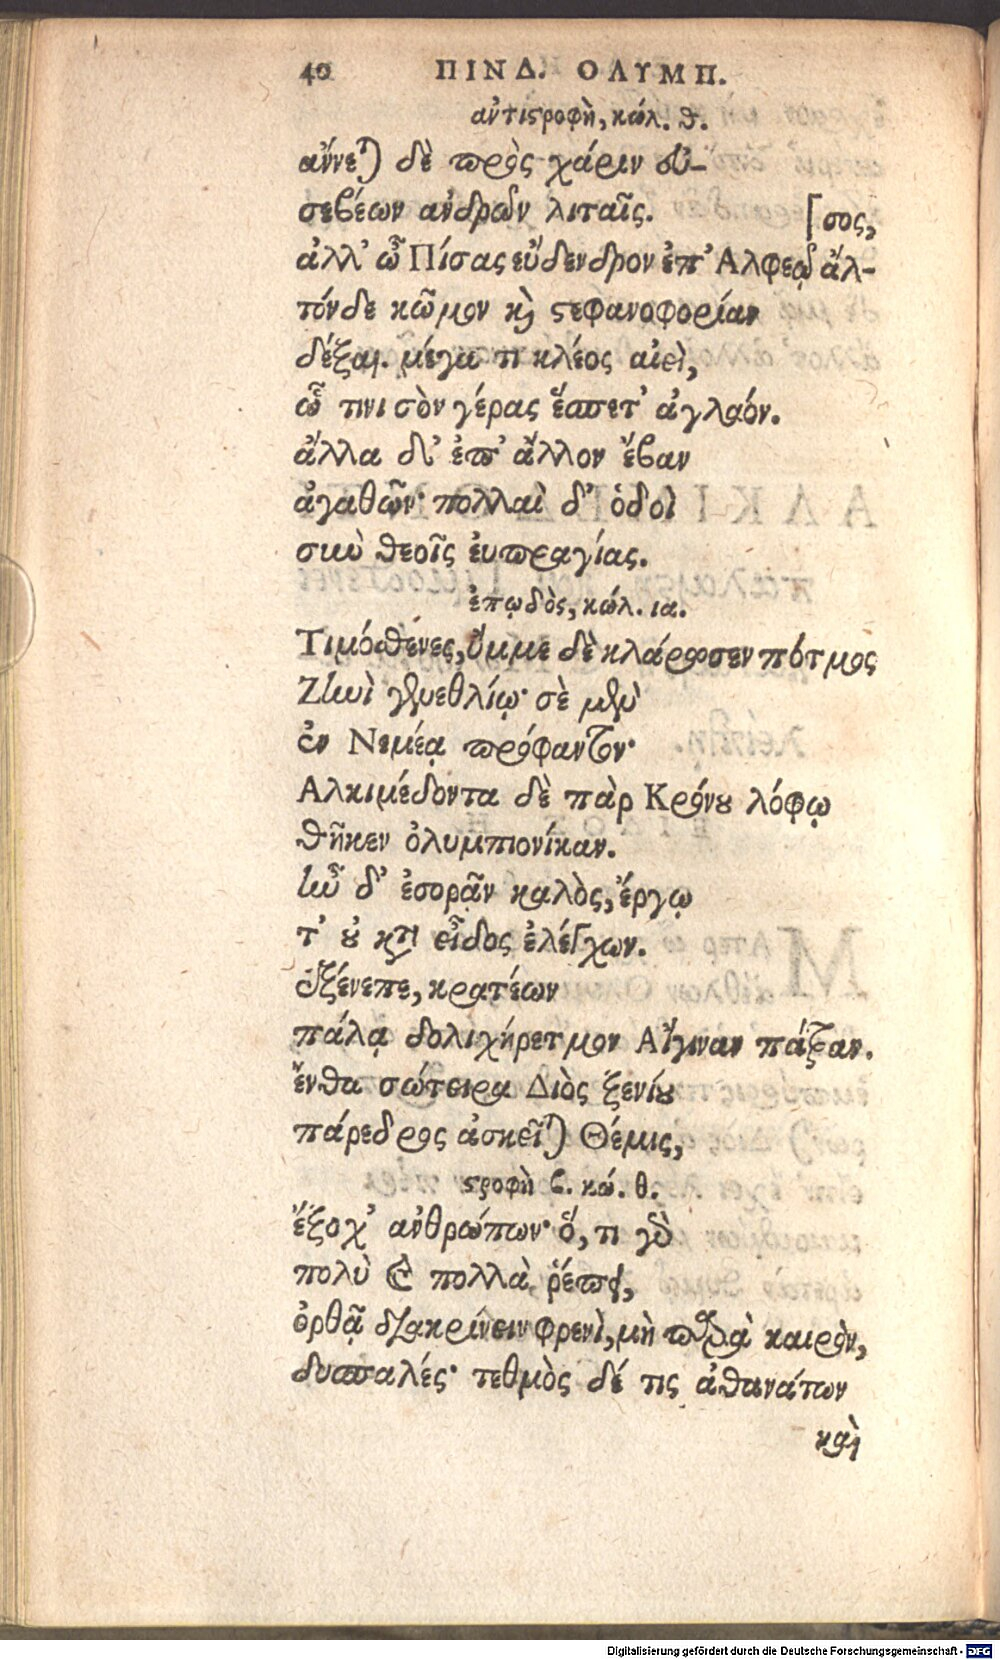 40 ΠΙΝΔ. ΟΛΥΜΠ.
αντιστροφὴ, κώλ. θ.
ἄννεται δὲ πρὸς χάριν εὐ-
σεβέων ανδρῶν λιταῖς. [σος,
ἀλλ' ὦ Πίσας εὔδενδρον ἐπ' Αλφεῷ ἄλ-
τόνδε κῶμον καὶ στεφανοφορίαν
δέξαι. μέγα τι κλέος αἰεὶ,
ᾧ τινι σὸν γέρας ἕσπετ' ἀγλαόν.
ἄλλα δ' ἐπ' ἄλλον ἔβαν
ἀγαθῶν· πολλαὶ δ' ὁδοὶ
σὺν θεοῖς ἐυπραγίας.
ἐπῳδὸς, κώλ. ια.
Τιμόσθενες, ὔμμε δὲ κλάρωσεν πότμος
Ζηνὶ γενεθλίῳ· σὲ μὲν
ἐν Νεμέᾳ πρόφαντον·
Αλκιμέδοντα δὲ πὰρ Κρόνου λόφῳ
θῆκεν ὀλυμπιονίκαν.
ἦν δ' ἐσορᾷν καλὸς, ἔργῳ
τ' οὐ κατὰ εἶδος ἐλέγχων.
ἐξένεπε, κρατέων
πάλᾳ δολιχήρετμον Αἴγιναν πάτραν.
ἔνθα σώτειρα Διὸς ξενίου
πάρεδρος ἀσκεῖται Θέμις,
στροφὴ β. κώ. θ.
ἔξοχ' ανθρώπων· ὅ, τι γὰρ
πολὺ καὶ πολλὰ ῥέπει,
ὀρθᾷ διακρίνειν φρενὶ, μὴ παρὰ καιρὸν,
δυσπαλές· τεθμὸς δέ τις ἀθανάτων
καὶ
Digitalisierung gefördert durch die Deutsche Forschungsgemeinschaft - DFG